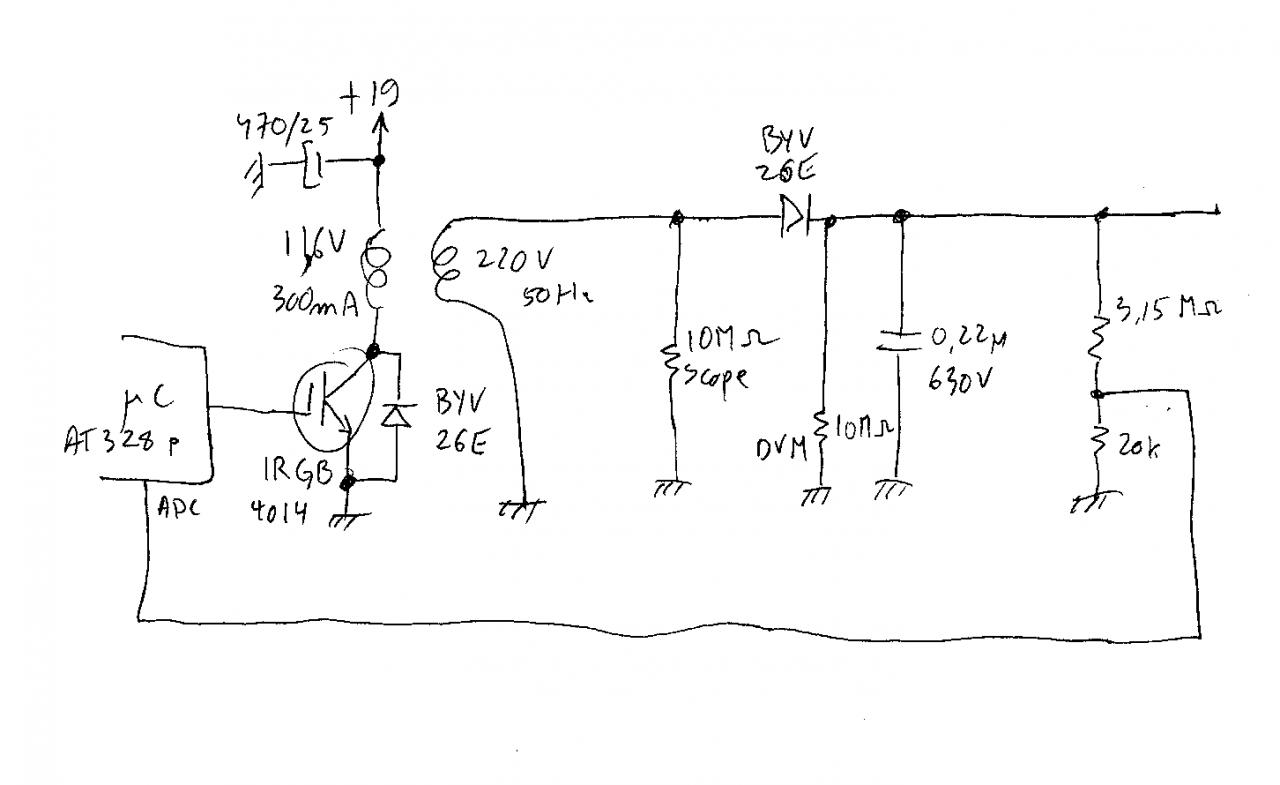 +19
470/25
BYV
26E
11,6V
300mA
220V
50Hz
3,15 MΩ
10MΩ
scope
0,22µ
630V
µC
AT328p
BYV
26E
DVM
10MΩ
20k
IRGB
4014
ADC